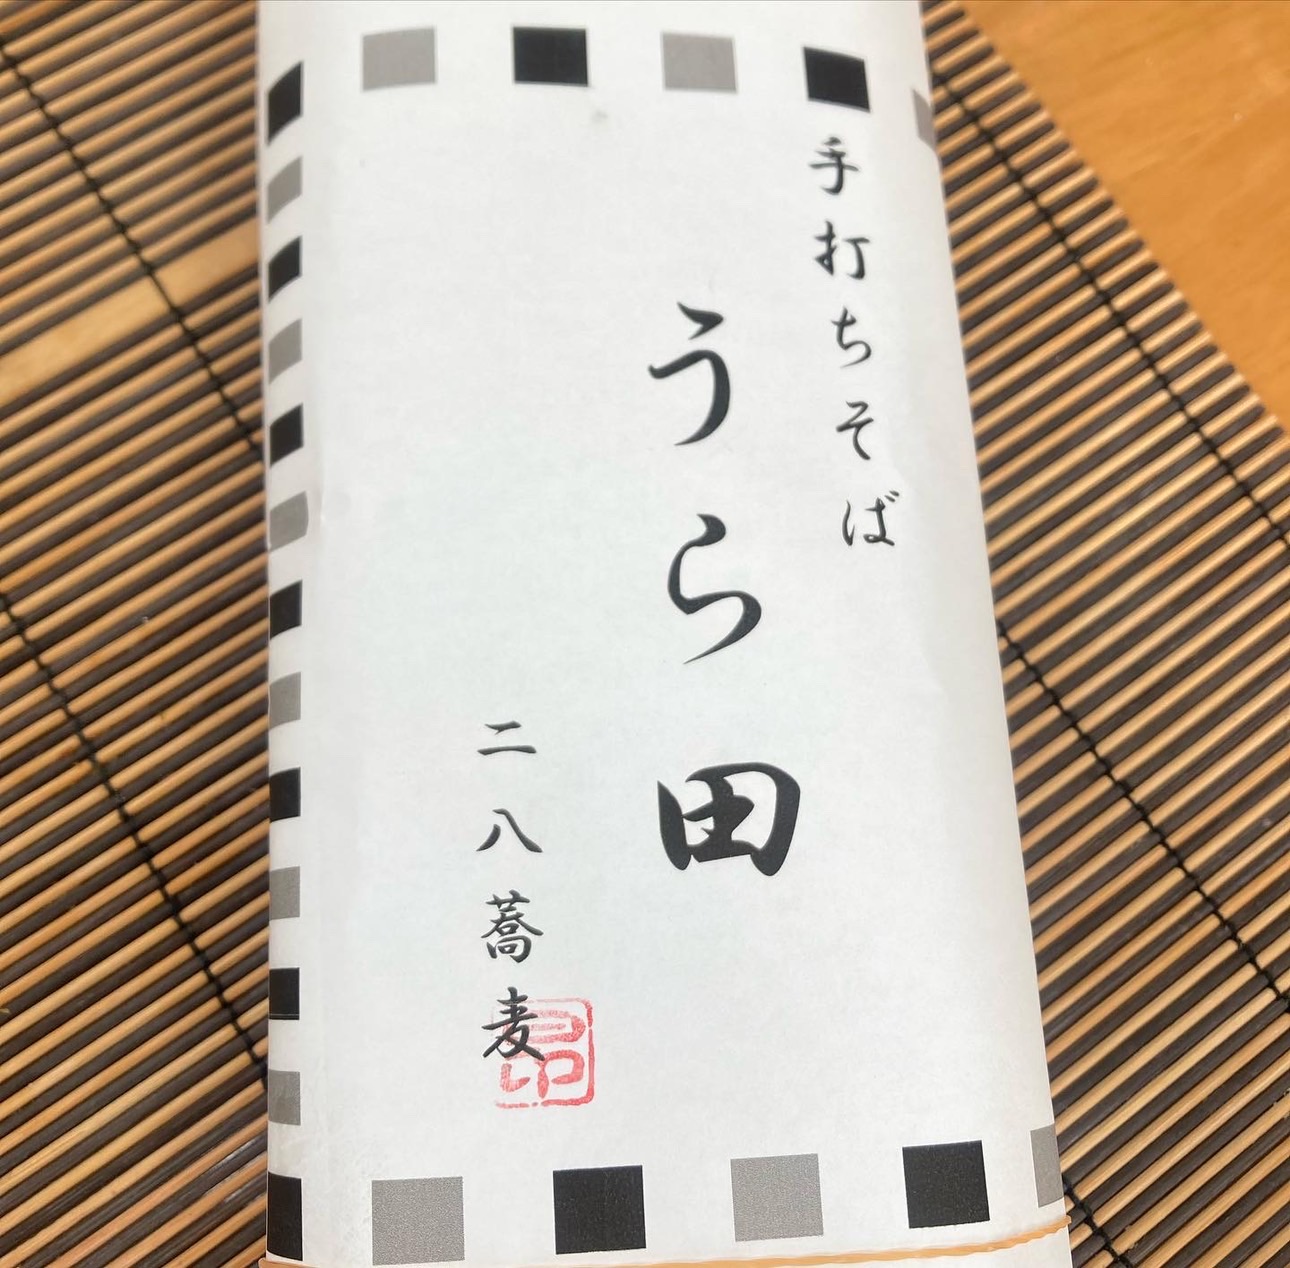 手打ちそば
うら田
二八蕎麦